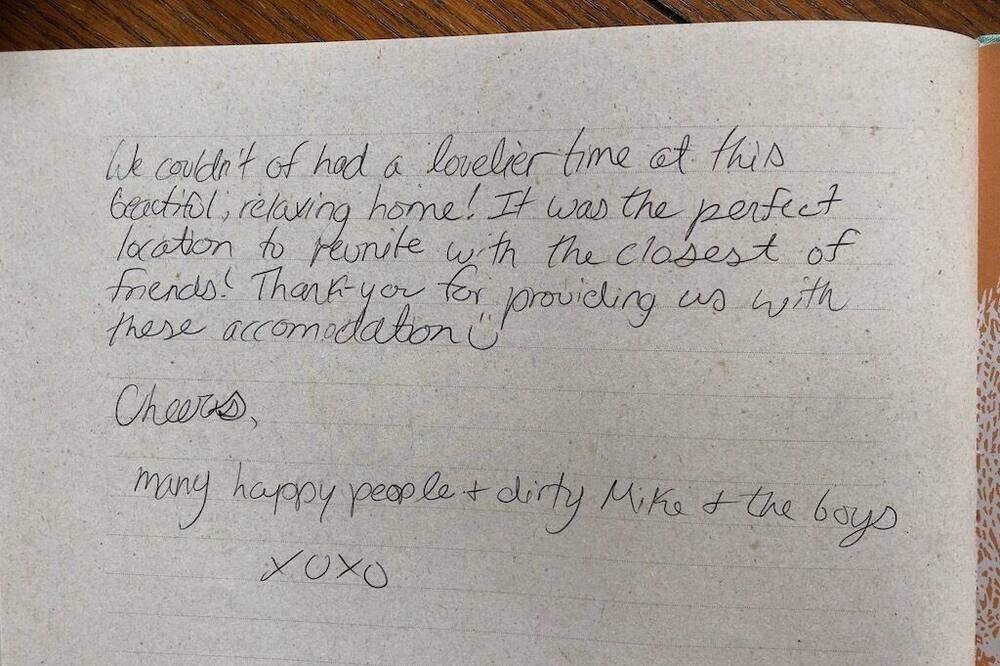 We couldn't of had a lovelier time at this
beactiful, relaxing home! It was the perfect
location to reunite with the closest of
friends! Thank-you for providing us with
these accomodation Ü
Cheers,
many happy people + dirty Mike + the boys
XOXO